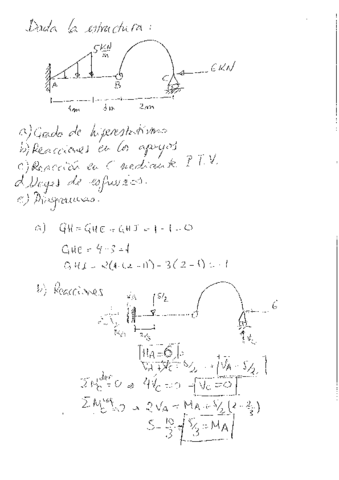 Dada la estructura:
5 KN/m
6 KN
A
B
C
1m
1m
2m
a) Grado de hiperestatismo
b) Reacciones en los apoyos
c) Reacción en C mediante P.T.V.
d) Leyes de esfuerzos.
e) Diagramas.
a) GH = GHE + GHI = 1 - 1 = 0
GHE = 4 - 3 = 1
b) Reacciones
5/2
6
2/3
V_C
M_A
= 0 → 4V_C = 0 → V_C = 0
→ 2V_A = M_A + 5/2 (2 - 2/3)
5 - 10/3 = 5/3 = M_A